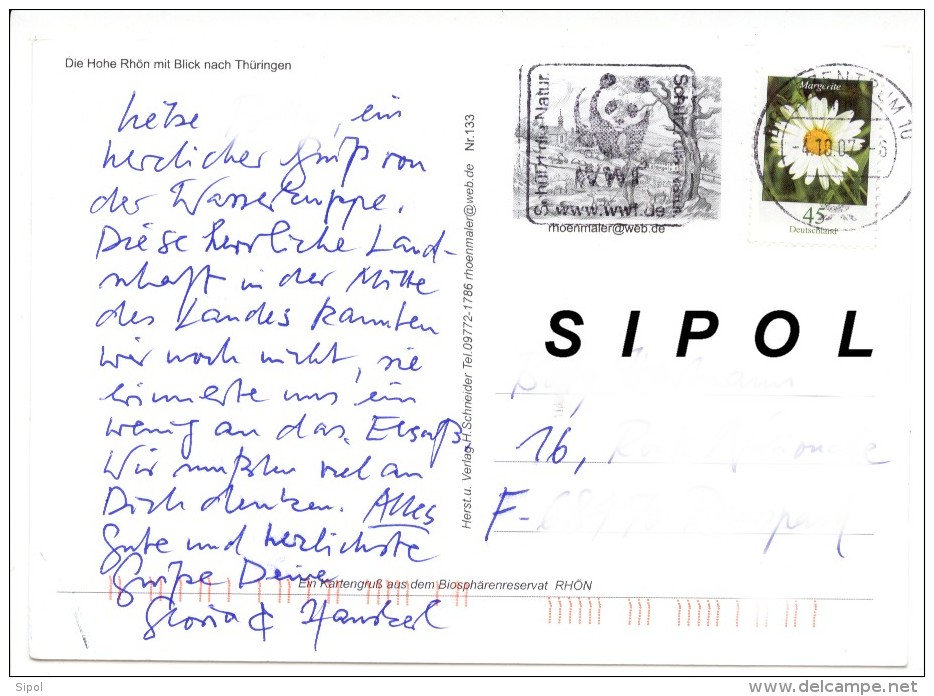 Die Hohe Rhön mit Blick nach Thüringen
Liebe , ein
herzlicher Gruß von
der Wasserkuppe.
Diese herrliche Land-
schaft in der Mitte
des Landes kannten
wir noch nicht, sie
erinnerte uns ein
wenig an das Elsaß.
Wir mußten viel an
Dich denken. Alles
Gute und herzlichste
Grüße Deine
Gloria &
Herst.u. Verlag H.Schneider Tel.09772-1786 rhoenmaler@web.de Nr.133
Schützt die Natur
www.wwf.de
rhoenmaler@web.de
10
-4.10.07
Margerite
45
Deutschland
SIPOL
16,
F-
Ein Kartengruß aus dem Biosphärenreservat RHÖN
Sipol
www.delcampe.net